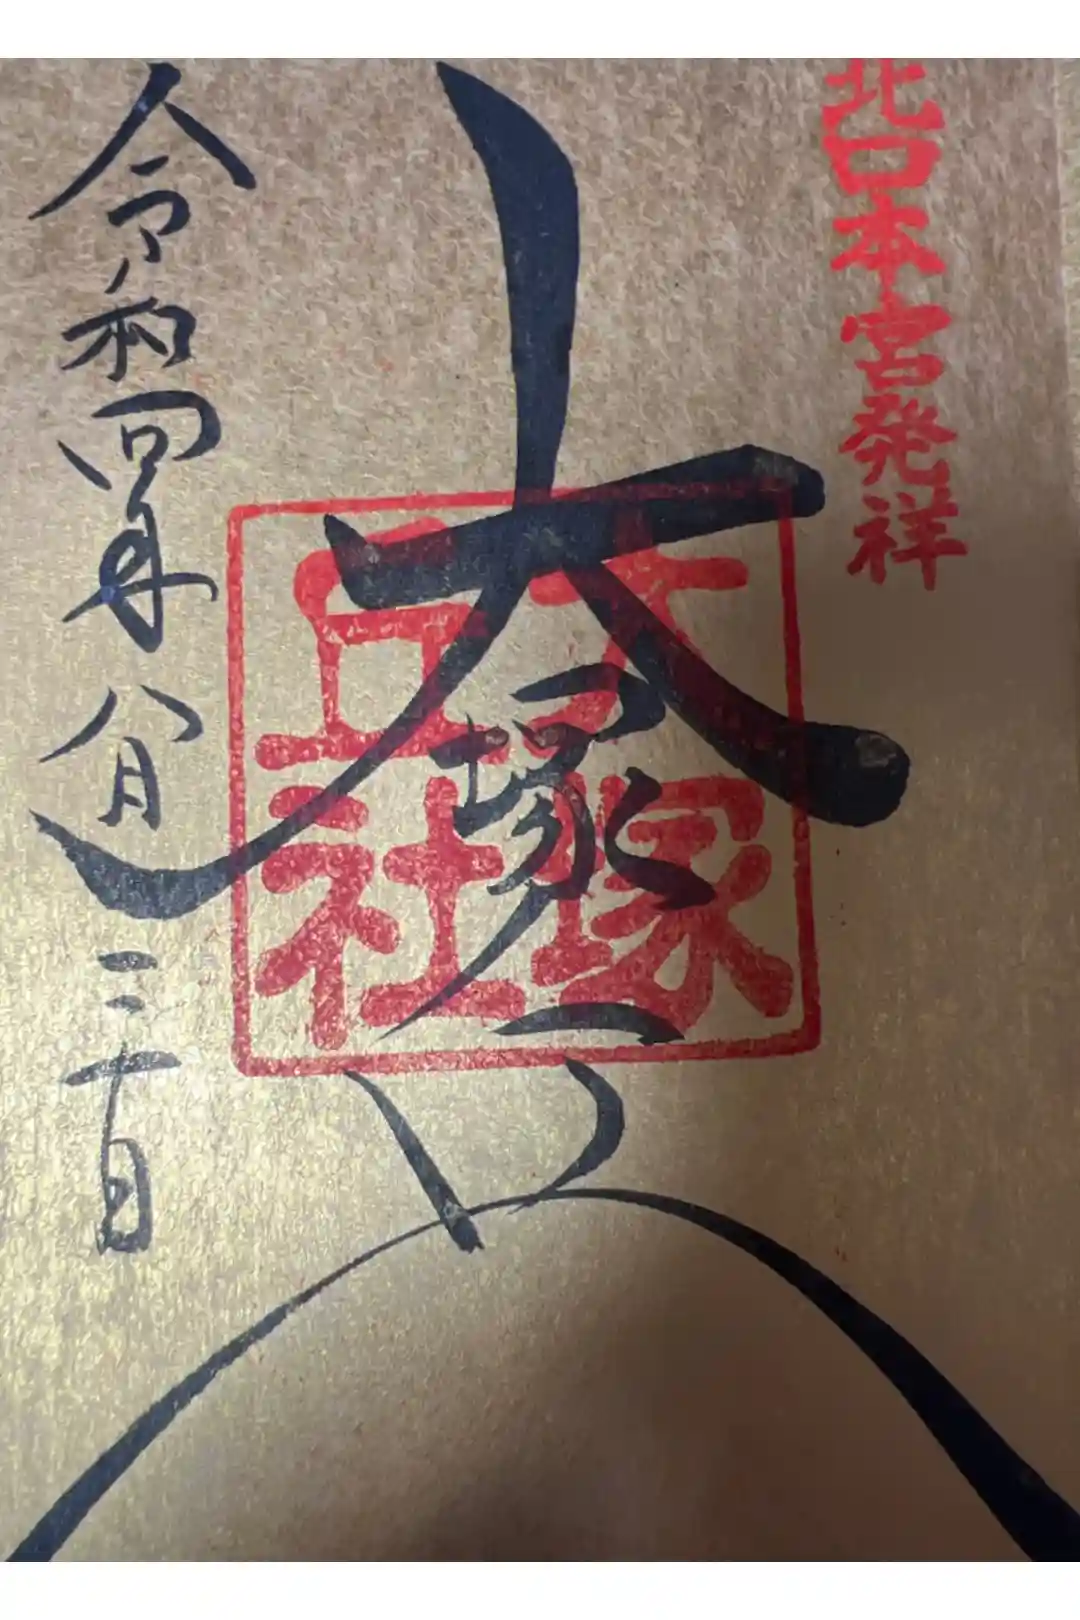 北口本宮発祥
大塚
大塚
丘社
令和四年八月二十日